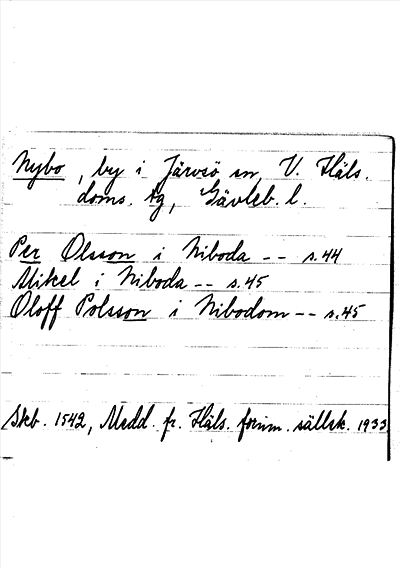 Nybo, by i Järvsö sn, V. Häls.
doms. tg, Gävleb. l.
Per Olsson i Niboda -- s. 44
Mikel i Niboda -- s. 45
Oloff Polsson i Nibodom -- s. 45
Skb. 1542, Medd. fr. Häls. fornm. sällsk. 1933